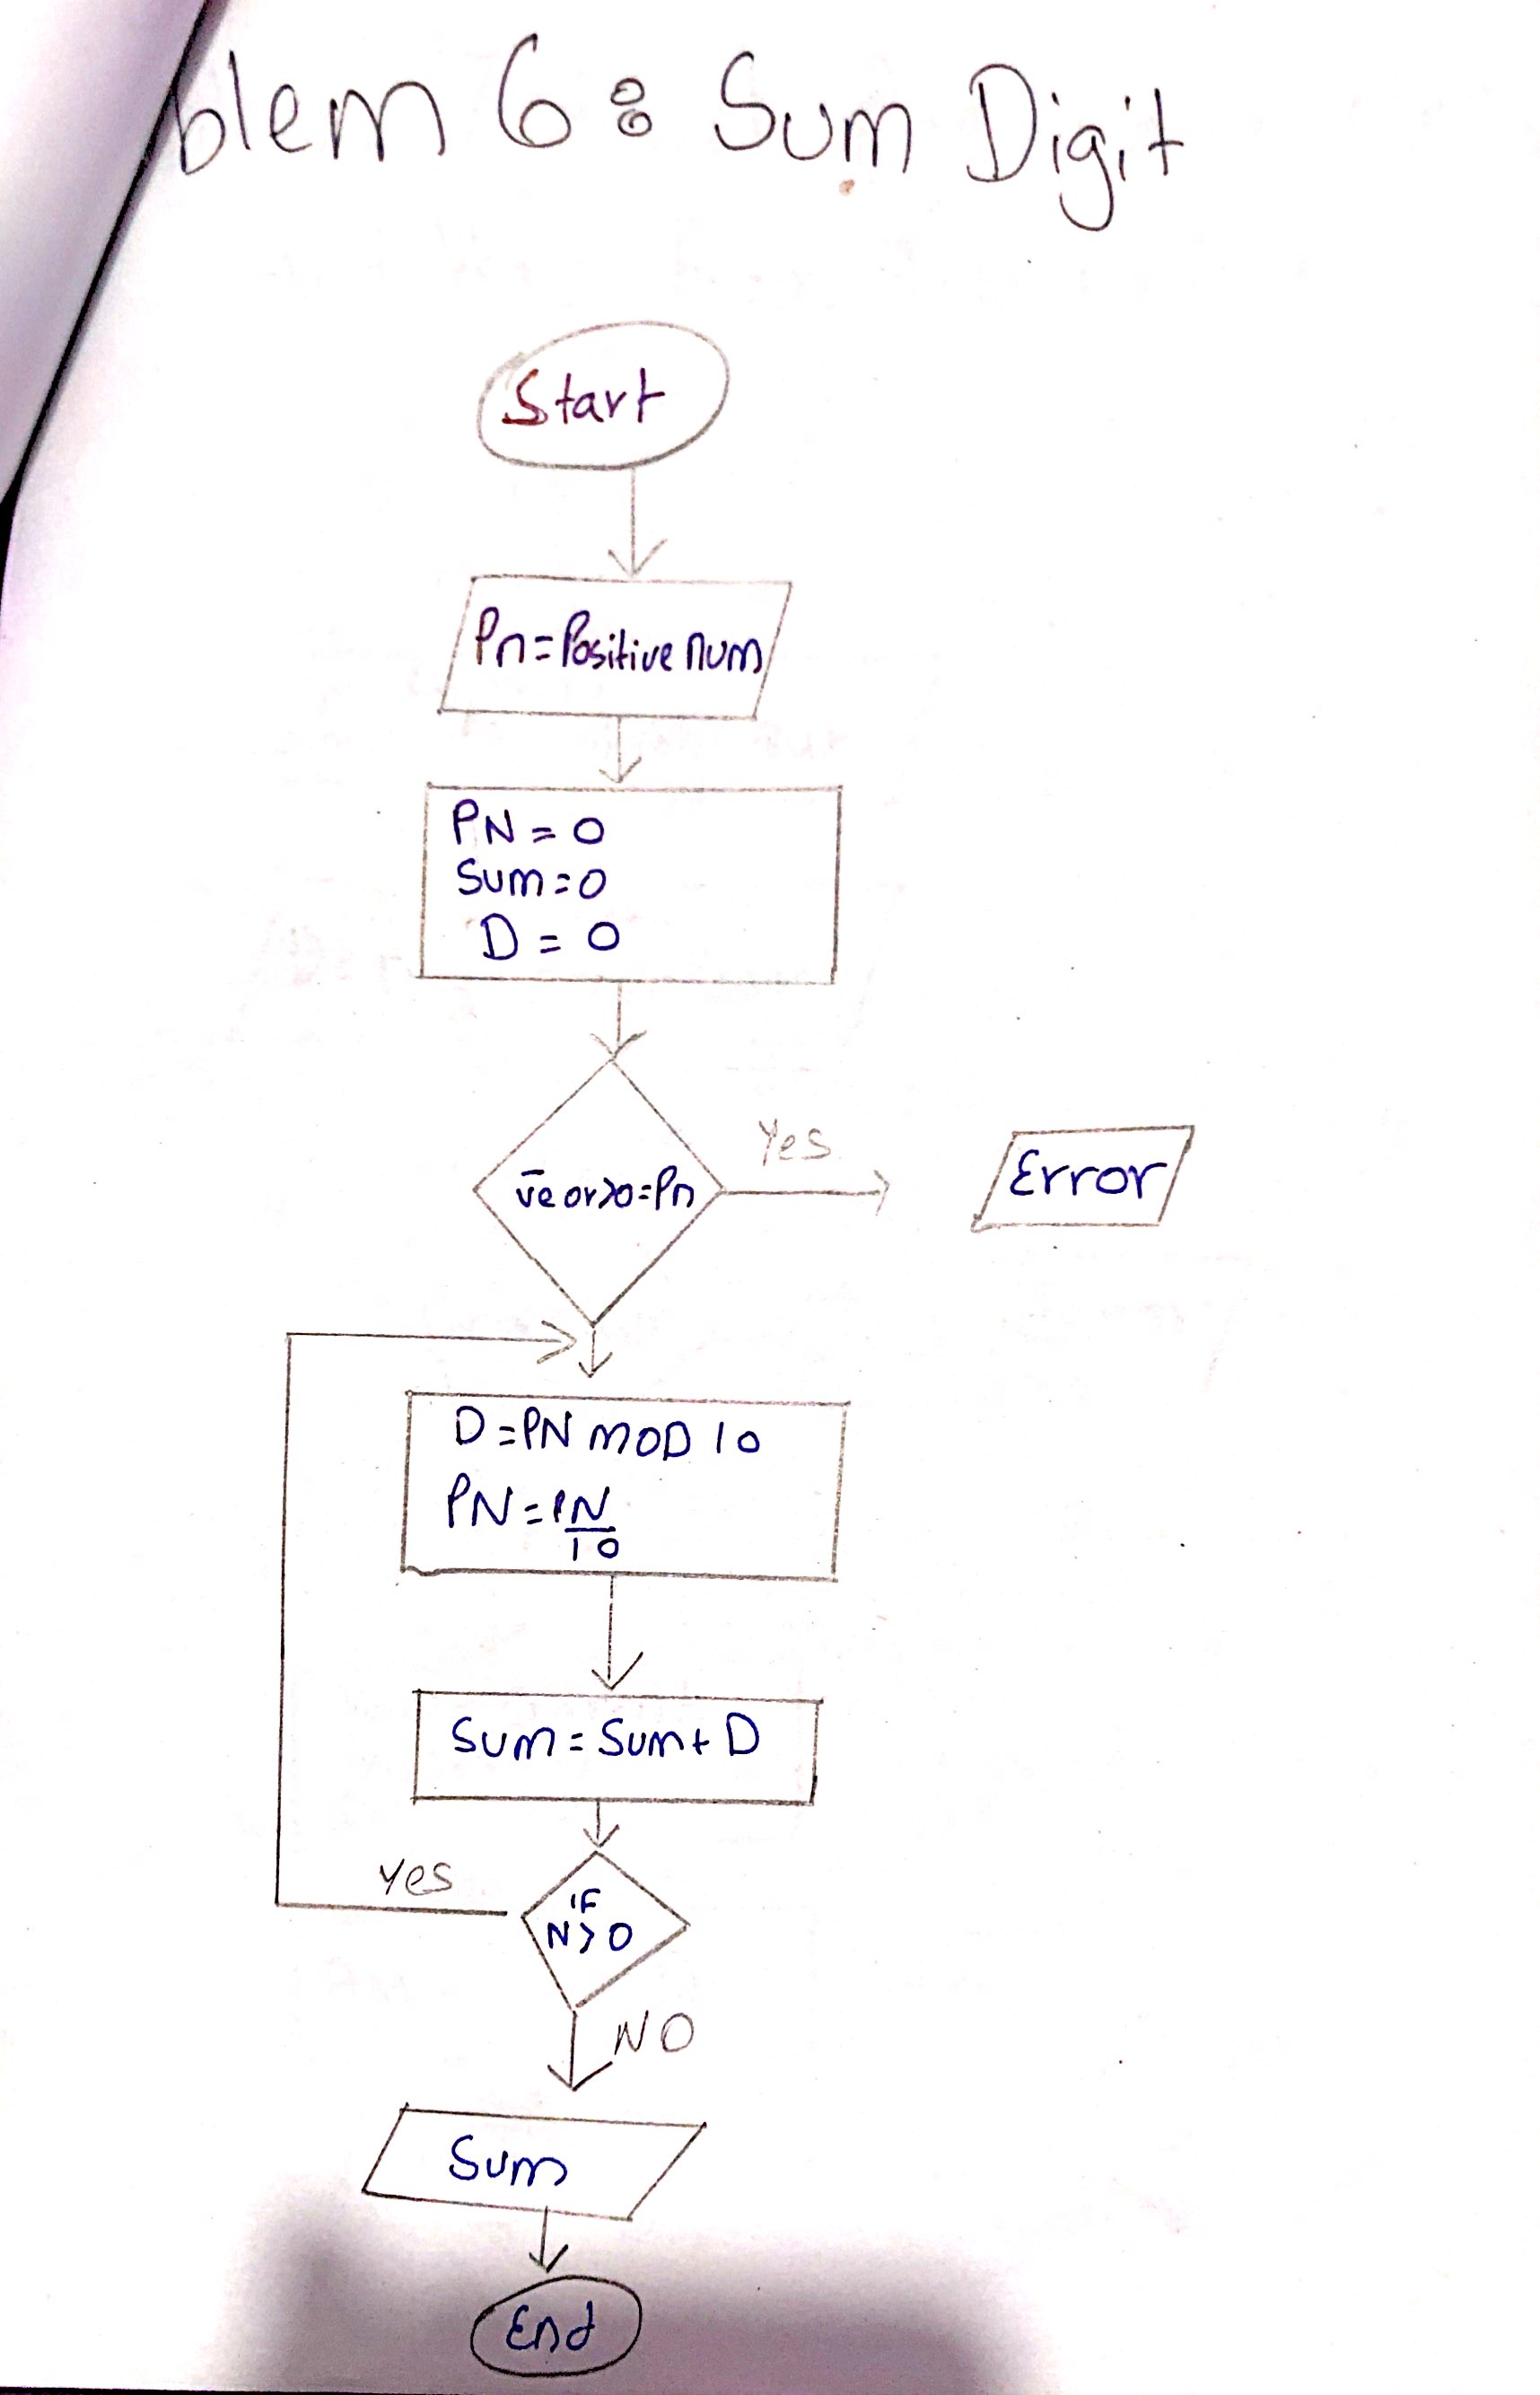 blem 6: Sum Digit
Start
Pn=Positive num
PN=0
Sum=0
D=0
v̄e or >0=Pn
Yes
Error
D=PN MOD 10
PN=PN
10
Sum=Sum+D
Yes
IF
N>0
NO
Sum
End